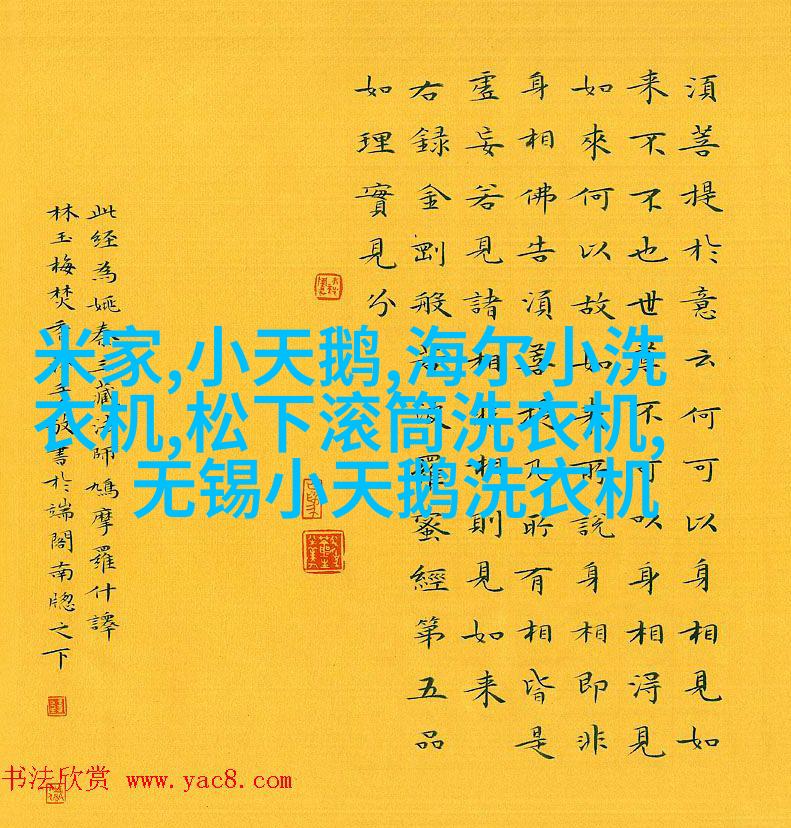 須菩提於意云何可以身相見如
来不不也世尊不可以身相淂見
如來何以故如来所說身相即非
身相佛告須菩提乃所有相皆是
虛妄若見諸相非相則見如来
右録金剛般若波羅蜜經第五品
如理實見分
此経為姚秦三藏法師鳩摩羅什譯
林玉梅焚香手敬書於端閣南牕之下
米家,小天鹅,海尔小洗
衣机,松下滚筒洗衣机,
无锡小天鹅洗衣机
书法欣赏 www.yac8.com